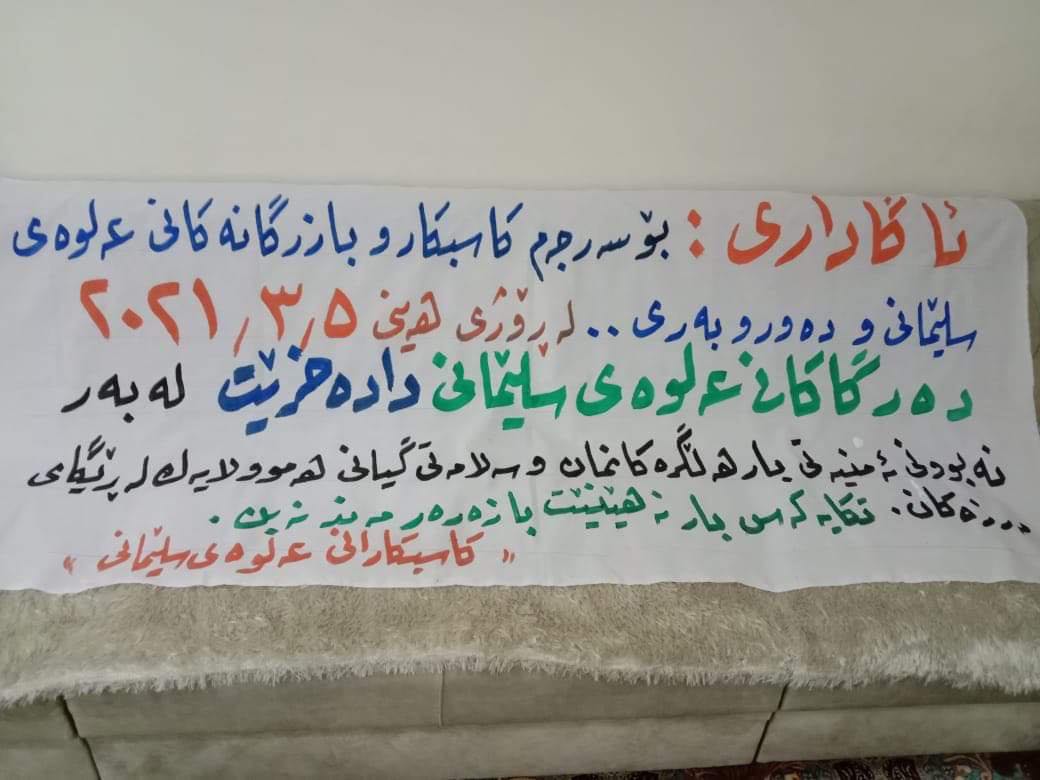 ئاگاداری : بۆ سەرجەم کاسبکار و بازرگانەکانی عەلوەی
سلێمانی و دەوروبەری .. لە ڕۆژی هەینی ٢٠٢١/٣/٥
دەرگاکانی عەلوەی سلێمانی دادەخرێت لەبەر
نەبوونی ئەمنیەتی بارهەڵگرەکانمان و سەلامەتی گیانی هەموولایەك لە ڕێگای
مەرزەکان. تکایە کەس بار نەهێنێت با زەرەرمەند نەبن.
« کاسبکارانی عەلوەی سلێمانی »